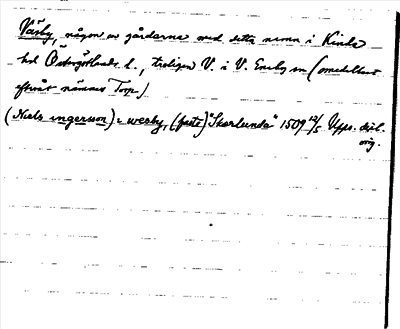 Väsby, någon av gårdarna med detta namn i Kinda
hd Östergötlands l., troligen V. i V. Eneby sn (omedelbart
efteråt nämnes Torp)
(Niels ingersson) i wesby, (faste) "Skarlunda" 1509 12/5 Upps. dipl.
orig.